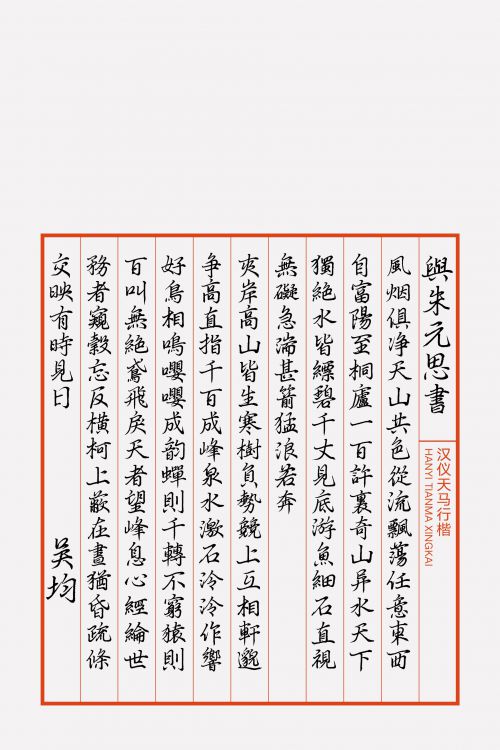 與朱元思書
汉仪天马行楷
HANYI TIANMA XINGKAI
風烟俱净天山共色從流飄蕩任意東西
自富陽至桐廬一百許裏奇山异水天下
獨絶水皆縹碧千丈見底游魚細石直視
無礙急湍甚箭猛浪若奔
夾岸高山皆生寒樹負勢競上互相軒邈
争高直指千百成峰泉水激石泠泠作響
好鳥相鳴嚶嚶成韵蟬則千轉不窮猿則
百叫無絶鳶飛戾天者望峰息心經綸世
務者窺穀忘反橫柯上蔽在晝猶昏疏條
交映有時見日
吴均